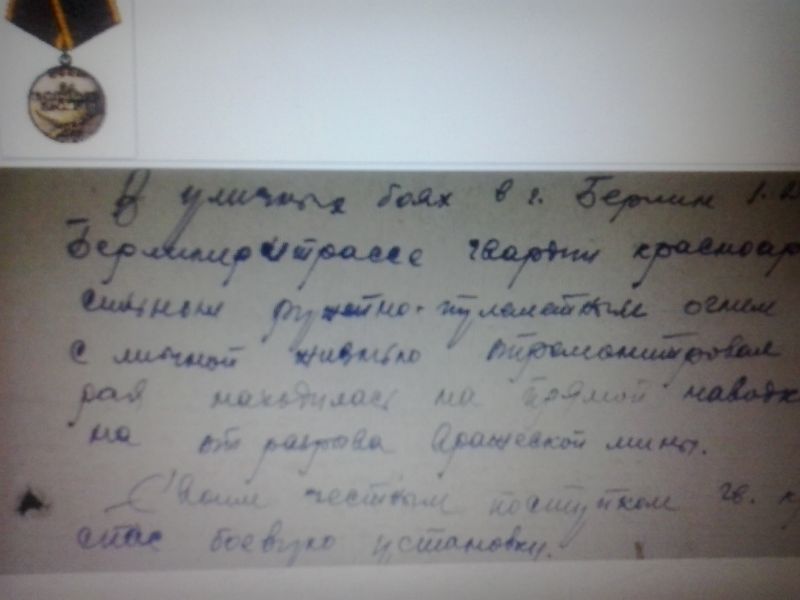 В уличных боях в г. Берлин 1.
Берлинерштрассе гвардии красноар
сильным ружейно-пулеметным огнем
с личной жизнью отремонтировал
рая находилась на прямой наводк
на от разрыва вражеской мины.
Своим честным поступком гв. к
спас боевую установку.